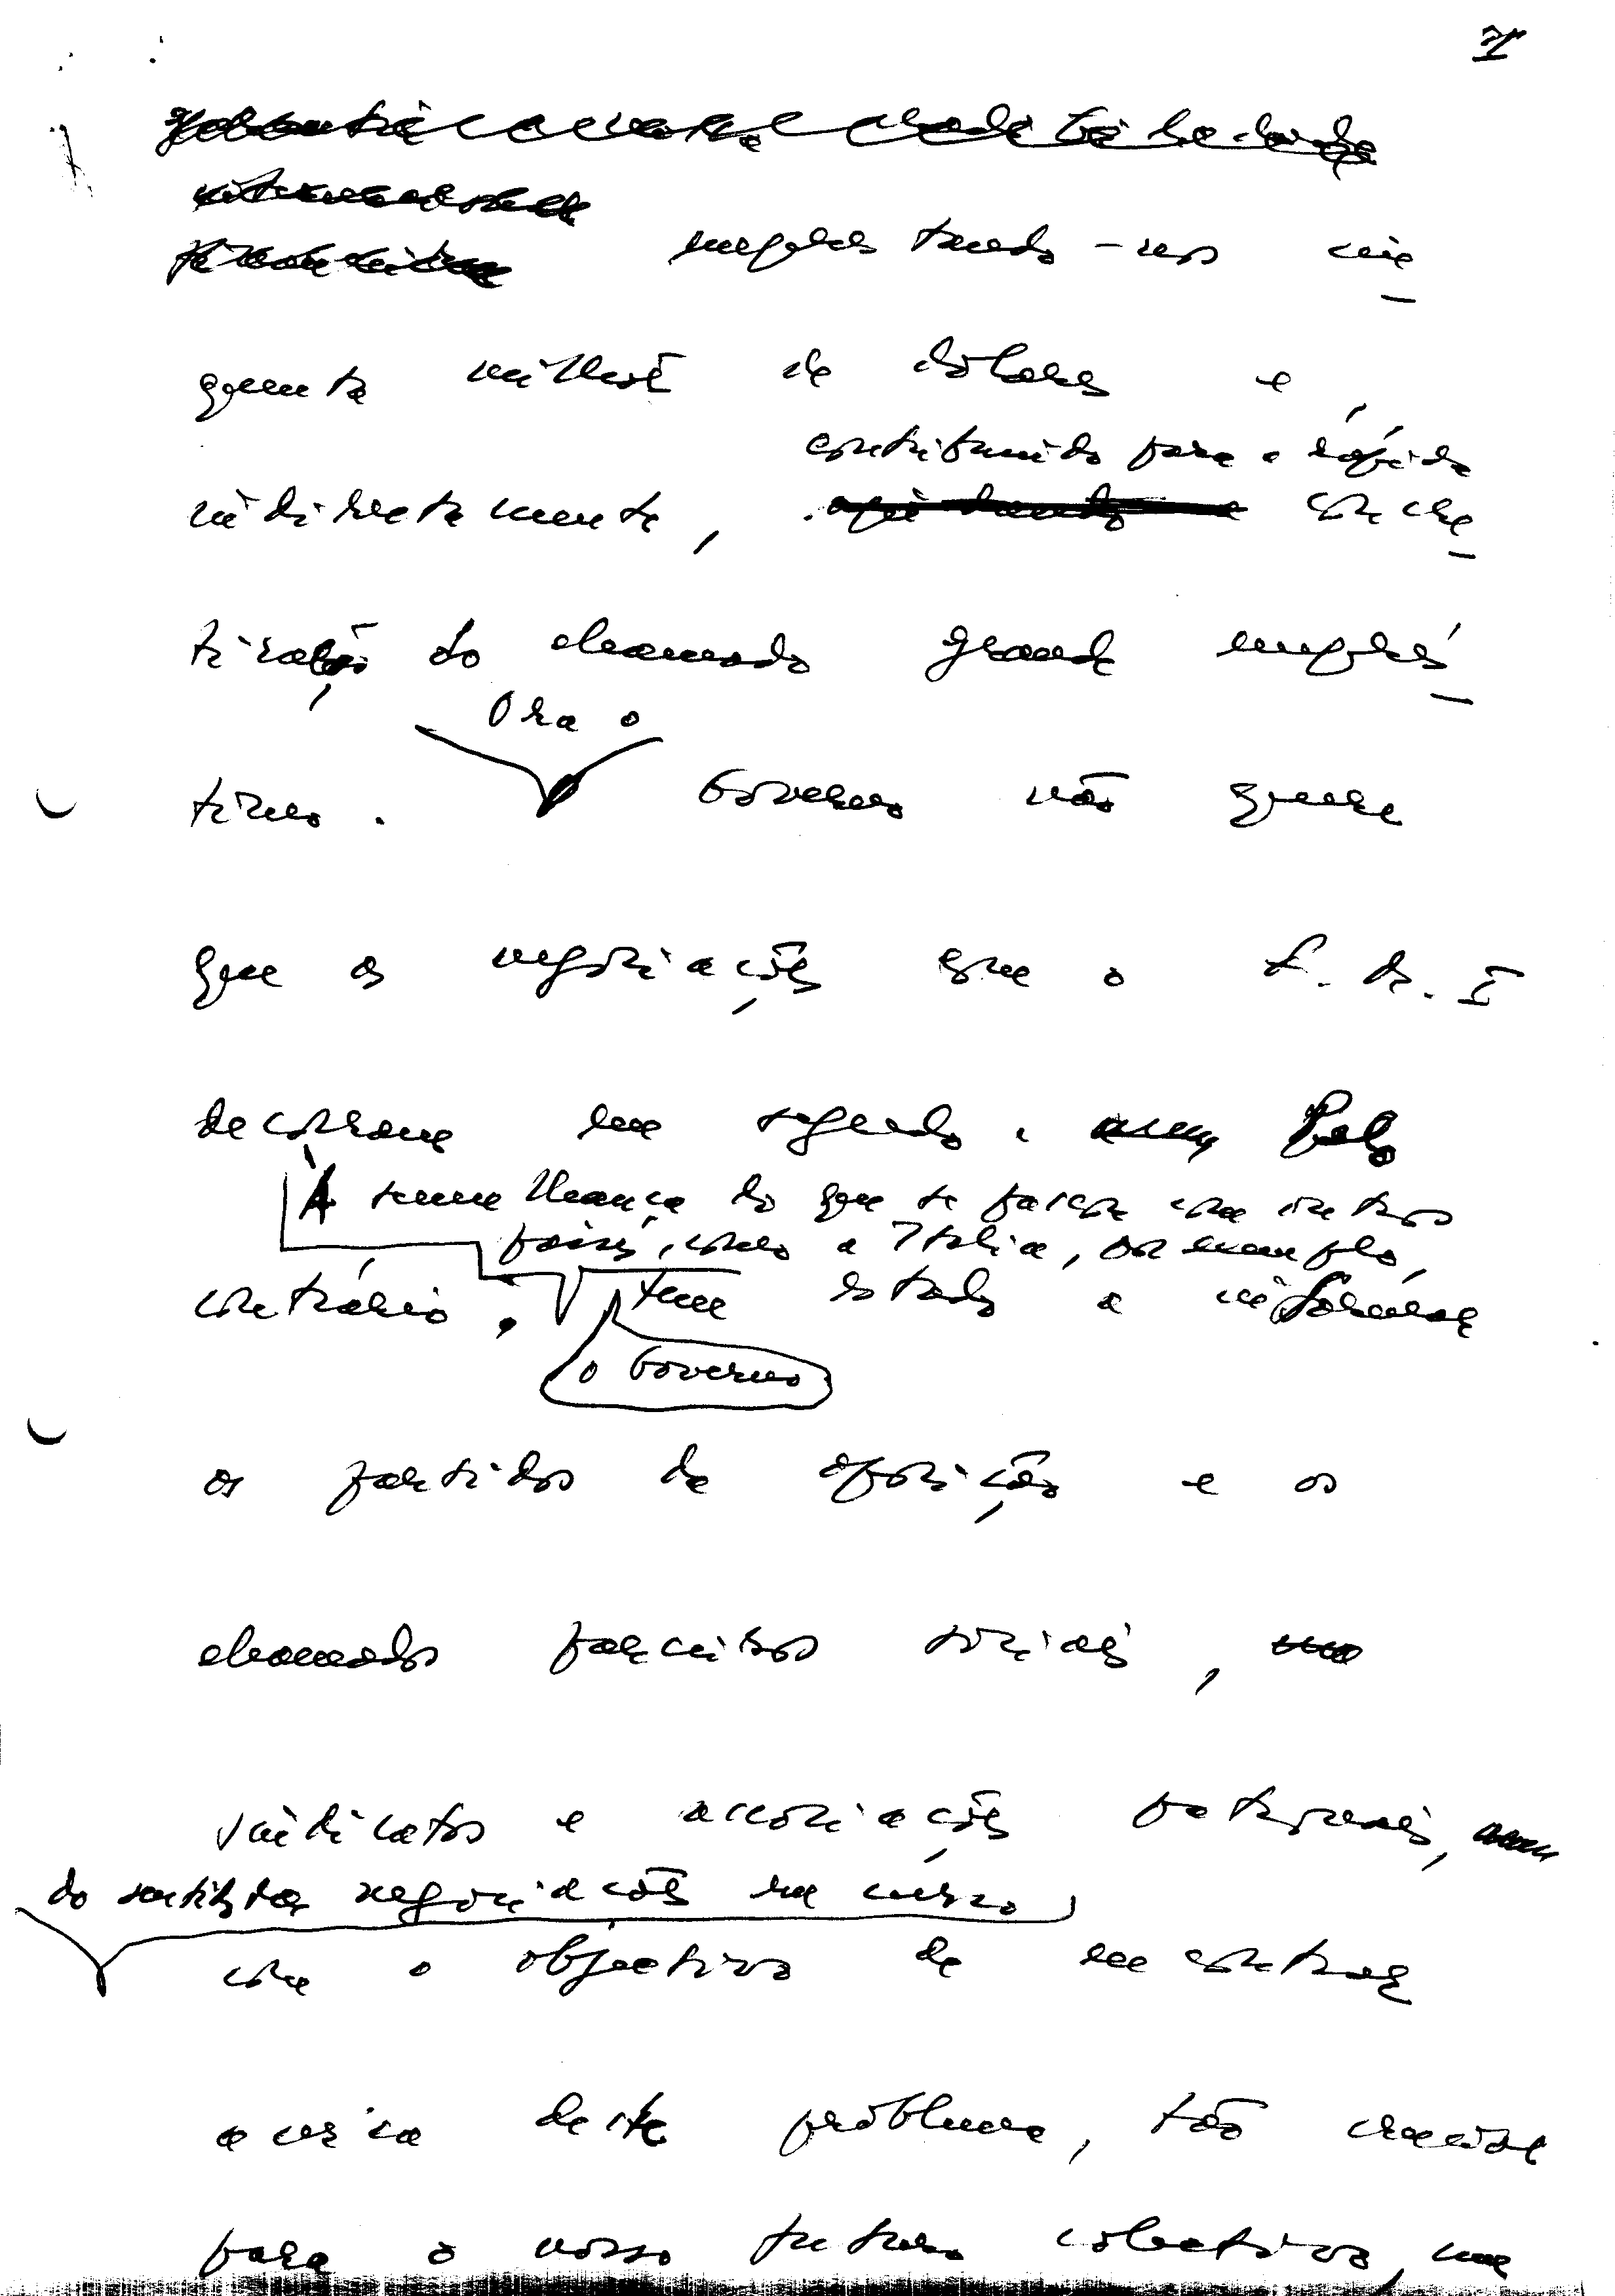 emprestando-nos cin-
quenta milhões de dólares e,
contribuindo para a rápida
indirectamente, concre-
tização do chamado grande emprés-
Ora o
timo. Governo não quere
que as negociações com o F. M. I
decorram em segredo. Pelo
À semelhança do que se passou com outros
países, como a Itália, por exemplo,
contrário, tem estado a informar
o Governo
os partidos da oposição e os
chamados parceiros sociais,
sindicatos e associações patronais,
do sentido das negociações em curso
com o objectivo de encontrar
acerca deste problema, tão crucial
para o nosso futuro colectivo, um